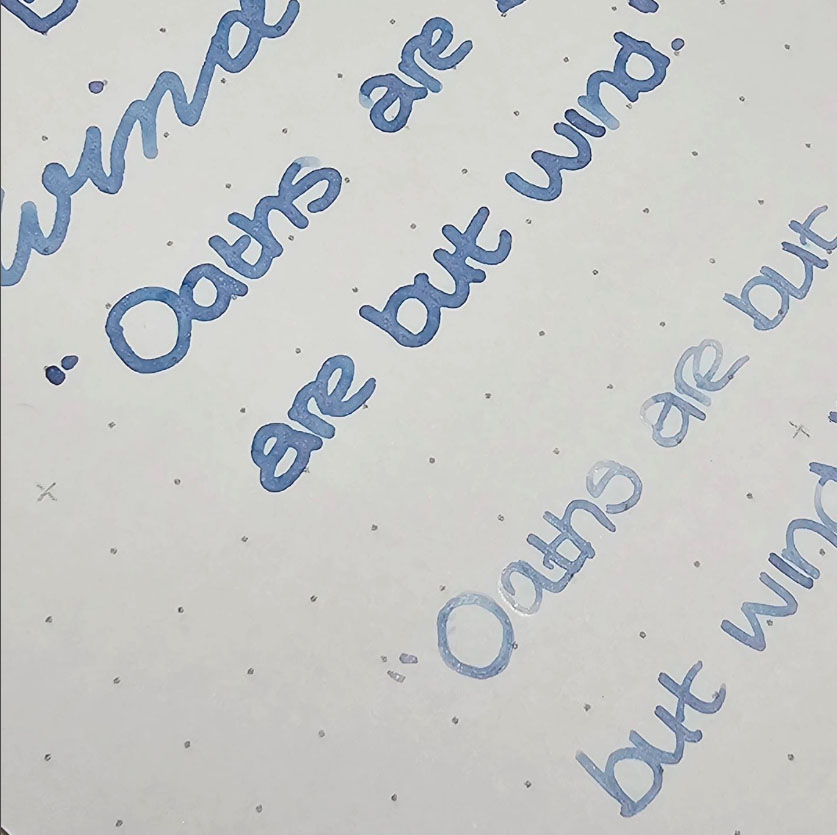 wind
"Oaths are
are but wind."
"Oaths are but
but wind